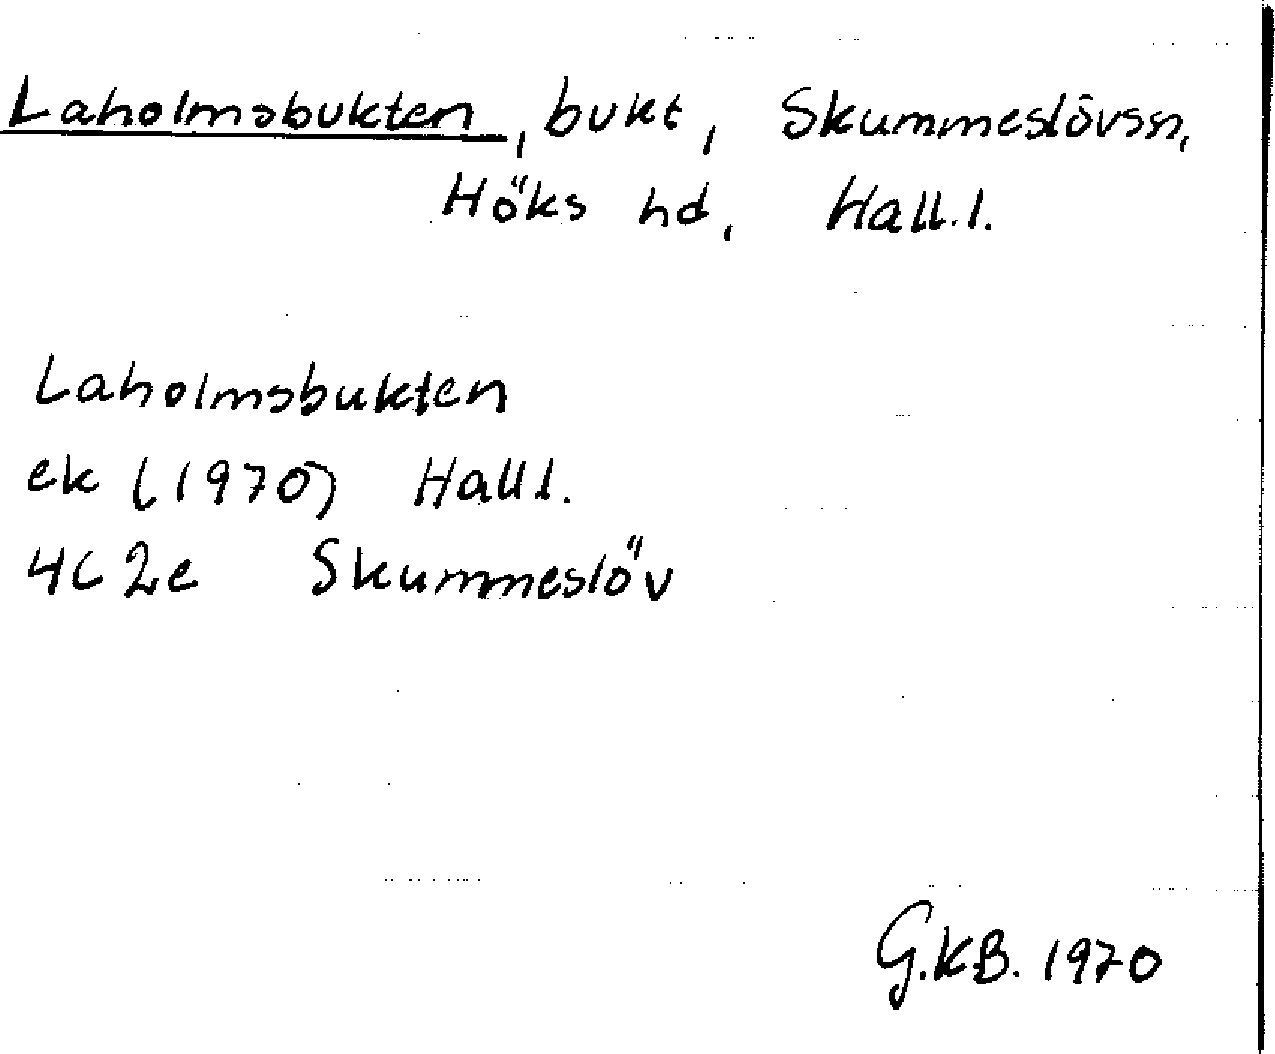 Laholmsbukten, bukt, Skummeslövssn,
Höks hd, Hall.l.
Laholmsbukten
ek (1970) Hall l.
4C 2e Skummeslöv
G.KB. 1970